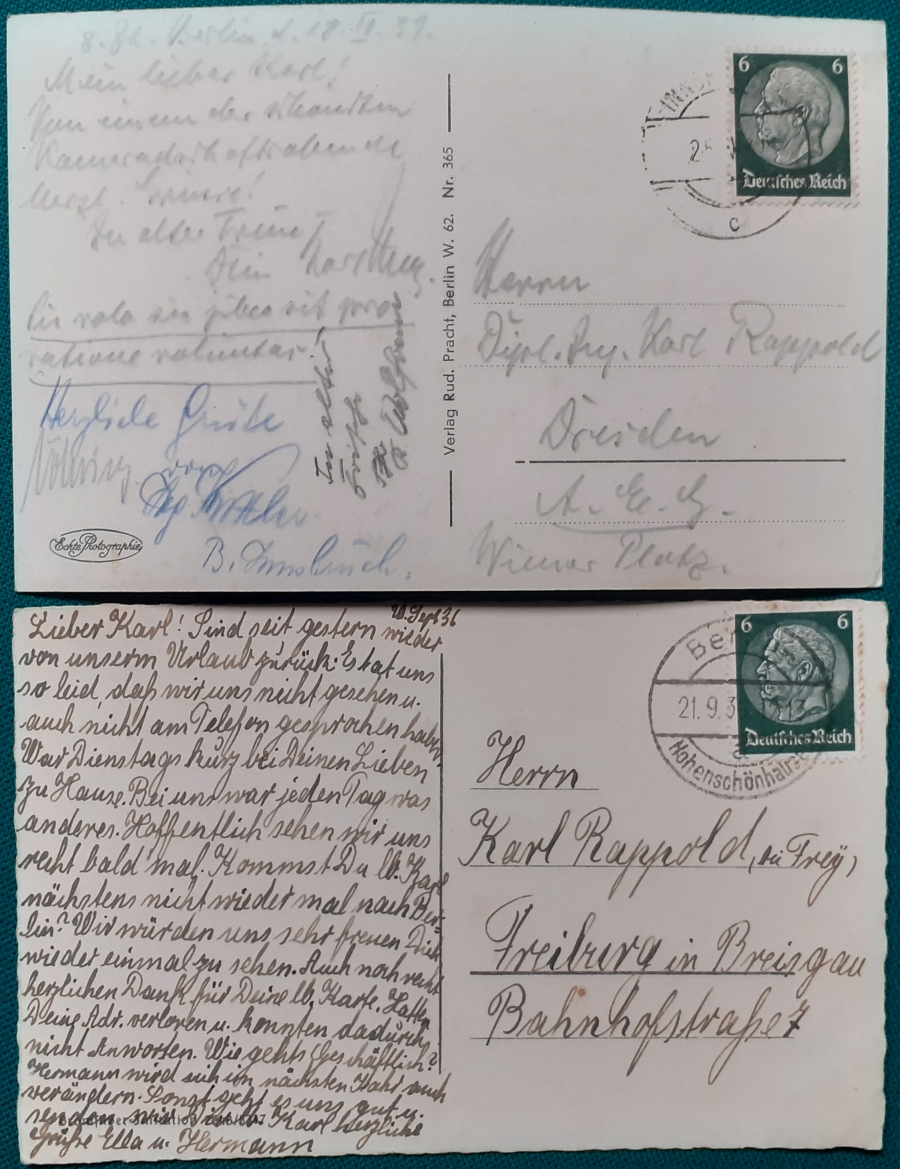 z. Zt. Berlin d. 18. II. 39.
Mein lieber Karl!
Von einem der schönsten
Kameradschaftsabende
herzl. Grüsse!
In alter Treue
Dein
Sic volo sic jubeo sit pro
ratione voluntas.
Herzliche Grüße
von
B. Innsbruck.
In alter
Frische
Echte Photographie
Verlag Rud. Pracht, Berlin W. 62. Nr. 365
6 6
Deutsches Reich
c
Herrn
Dipl. Ing. Karl Rappold
Dresden
A. E. G.
Wiener Platz.
20. Sept 36
Lieber Karl! Sind seit gestern wieder
von unserm Urlaub zurück. Es tat uns
so leid, daß wir uns nicht gesehen u.
auch nicht am Telefon gesprochen habn.
War Dienstags kurz bei Deinen Lieben
zu Hause. Bei uns war jeden Tag was
anderes. Hoffentlich sehen wir uns
recht bald mal. Kommst Du lb. Karl
nächstens nicht wieder mal nach Ber-
lin? Wir würden uns sehr freuen Dich
wieder einmal zu sehen. Auch noch recht
herzlichen Dank für Deine lb. Karte. Hatten
Deine Adr. verloren u. konnten dadurch
nicht Anworten. Wie gehts Geschäftlich?
Hermann wird sich im nächsten Jahr auch
verändern. Sonst geht es uns gut u.
senden wir Dir lb. Karl herzliche
Grüße Ella u. Hermann
6 6
Deutsches Reich
21.9.3
Hohenschönhausen
Herrn
Karl Rappold, (bei Frey)
Freiburg in Breisgau
Bahnhofstraße 7